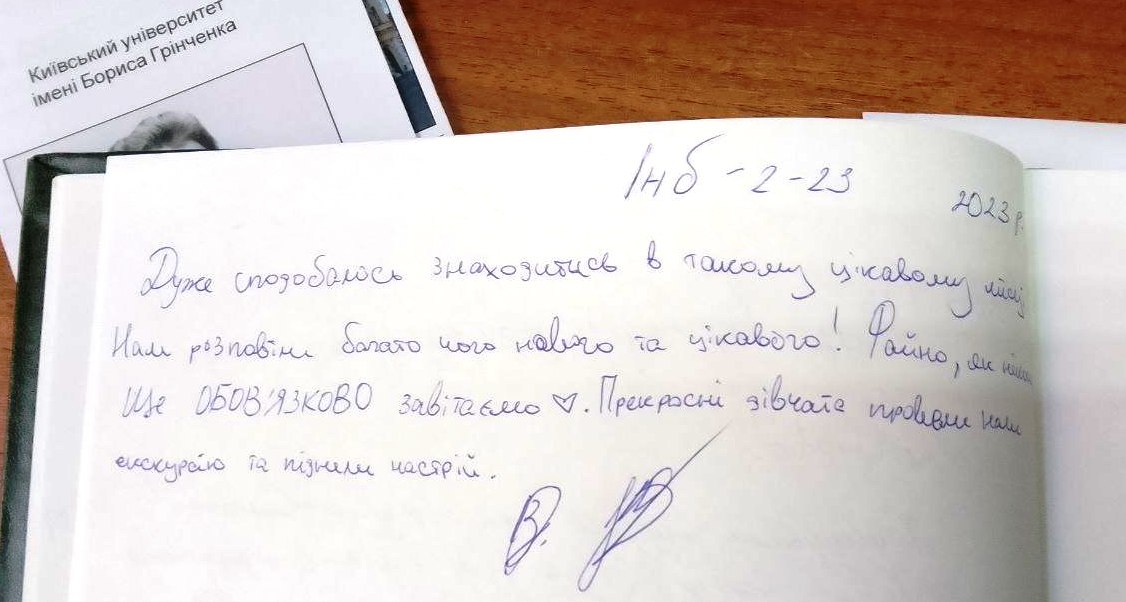 Київський університет
імені Бориса Грінченка
Інб - 2 - 23
2023 р.
Дуже сподобалось знаходитись в такому цікавому місці
Нам розповіли багато чого нового та цікавого! Файно, як
Ще ОБОВ'ЯЗКОВО завітаємо ♡. Прекрасні дівчата провели нам
екскурсію та підняли настрій.
В.